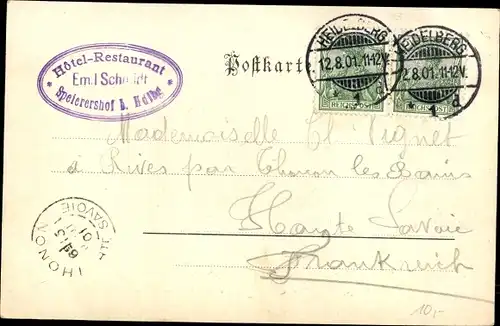 Hôtel-Restaurant
Emil Schmidt
Speierershof b. Heidel
Postkarte
HEIDELBERG
12.8.01.11-12V.
* 1 d
REICHSPOST
HEIDELBERG
12.8.01.11-12V.
* 1 d
REICHSPOST
Mademoiselle Cl Vignet
à Rives par Thonon les Bains
Haute Savoie
Frankreich
THONON
13
01
HTE SAVOIE
10,-